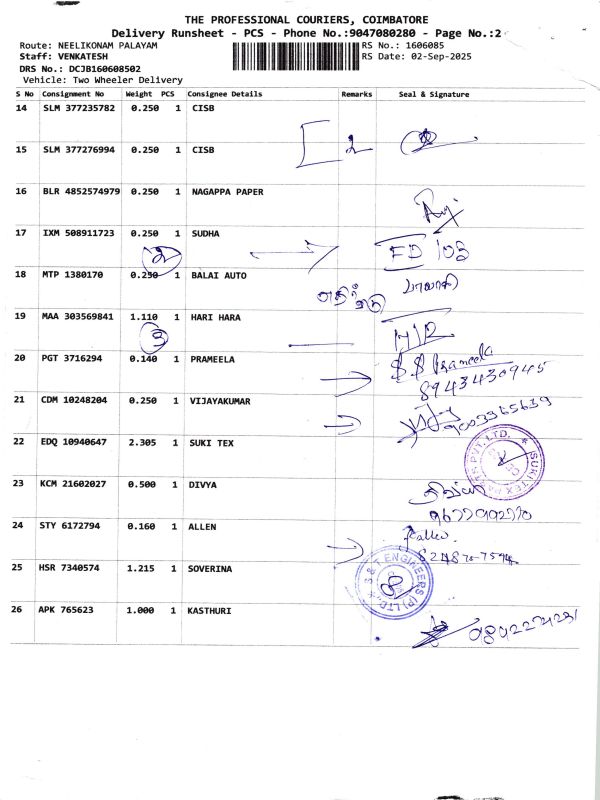 THE PROFESSIONAL COURIERS, COIMBATORE
Delivery Runsheet - PCS - Phone No.:9047080280 - Page No.:2
Route: NEELIKONAM PALAYAM RS No.: 1606085
Staff: VENKATESH RS Date: 02-Sep-2025
DRS No.: DCJB160608502
Vehicle: Two Wheeler Delivery
S No Consignment No Weight PCS Consignee Details Remarks Seal & Signature
14 SLM 377235782 0.250 1 CISB
2
15 SLM 377276994 0.250 1 CISB
16 BLR 4852574979 0.250 1 NAGAPPA PAPER
17 IXM 508911723 0.250 1 SUDHA
2 FD 103
18 MTP 1380170 0.250 1 BALAI AUTO
19 MAA 303569841 1.110 1 HARI HARA
3 N/R
20 PGT 3716294 0.140 1 PRAMEELA
S.S Prameela
8943430945
21 CDM 10248204 0.250 1 VIJAYAKUMAR
9003365639
22 EDQ 10940647 2.305 1 SUKI TEX
23 KCM 21602027 0.500 1 DIVYA
24 STY 6172794 0.160 1 ALLEN
25 HSR 7340574 1.215 1 SOVERINA
S & T ENGINEERS (P) LTD.
26 APK 765623 1.000 1 KASTHURI